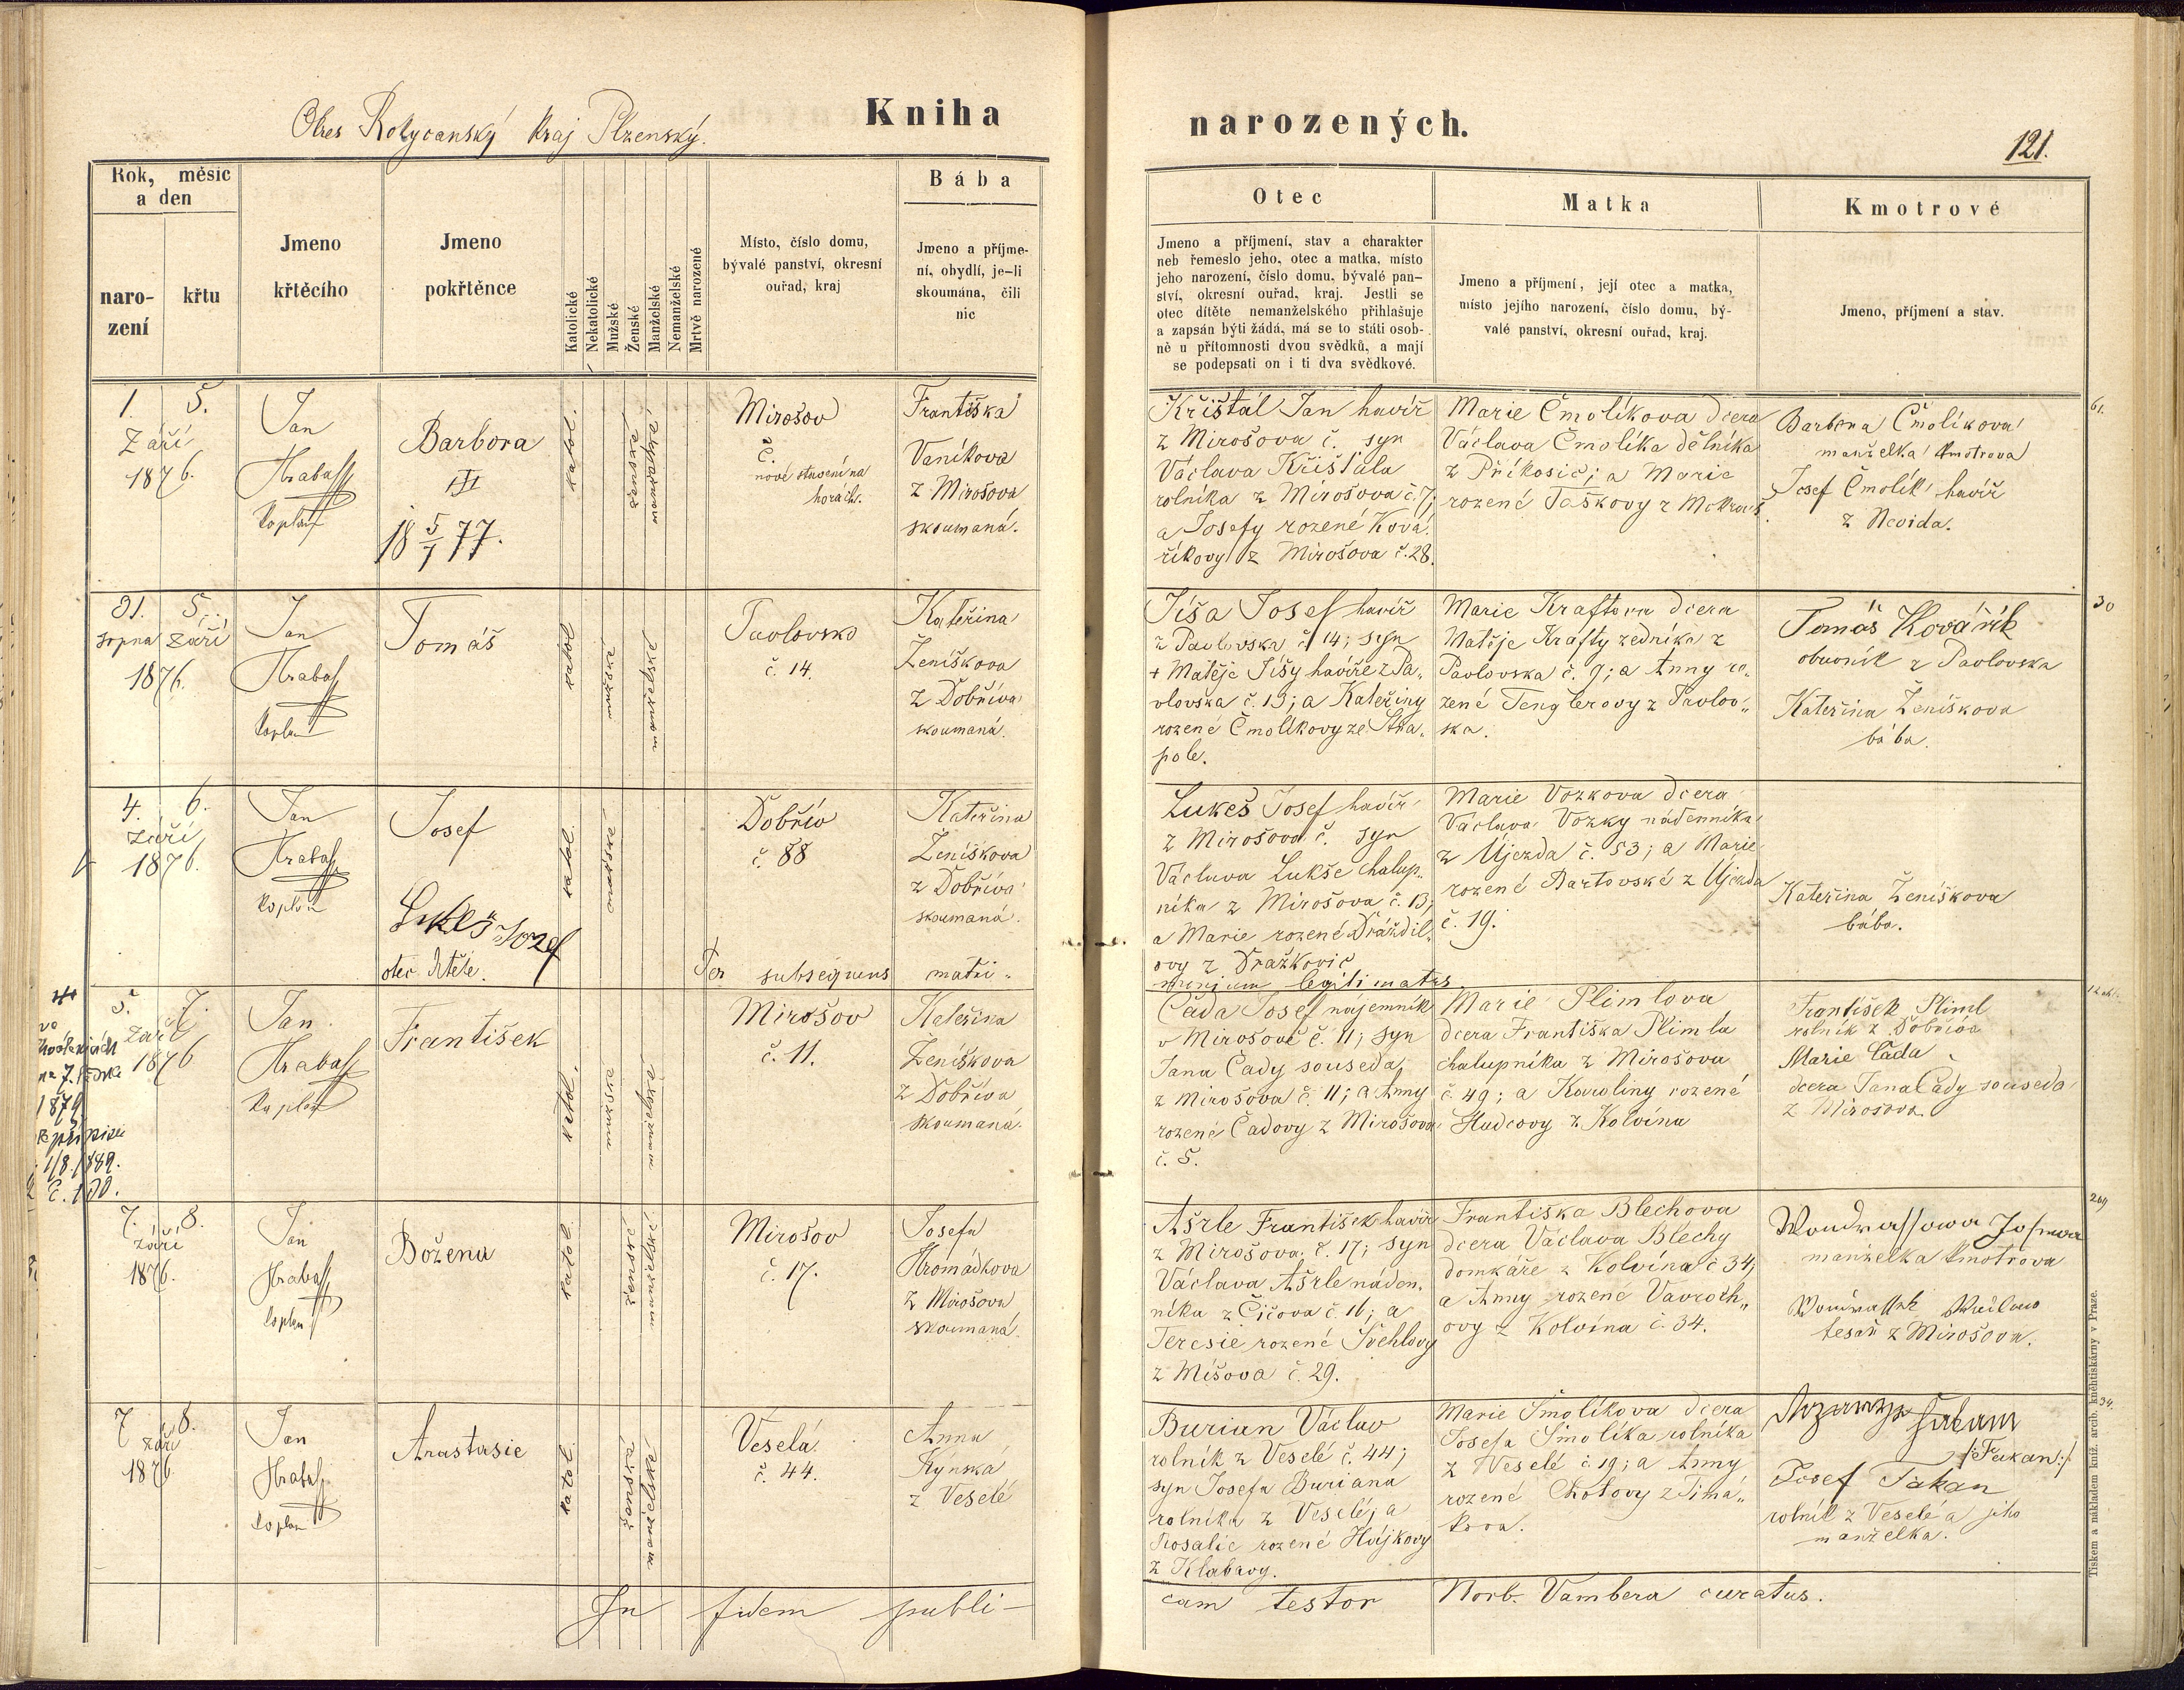 Okres Rokycanský kraj Plzenský.
Kniha
narozených.
121.
Rok, měsíc
a den
naro-
zení
křtu
Jmeno
křtěcího
Jmeno
pokřtěnce
Katolické
Nekatolické
Mužské
Ženské
Manželské
Nemanželské
Mrtvě narozené
Místo, číslo domu,
bývalé panství, okresní
ouřad, kraj
Bába
Jmeno a příjme-
ní, obydlí, je-li
skoumána, čili
nic
Otec
Jmeno a příjmení, stav a charakter
neb řemeslo jeho, otec a matka, místo
jeho narození, číslo domu, bývalé pan-
ství, okresní ouřad, kraj. Jestli se
otec dítěte nemanželského přihlašuje
a zapsán býti žádá, má se to státi osob-
ně u přítomnosti dvou svědků, a mají
se podepsati on i ti dva svědkové.
Matka
Jmeno a příjmení, její otec a matka,
místo jejího narození, číslo domu, bý-
valé panství, okresní ouřad, kraj.
Kmotrové
Jmeno, příjmení a stav.
1. 5.
Září
1876.
Jan
Hrabass
kaplan
Barbora
III
18 5/1 77.
katol.
ženské
manželské
Mirošov
č.
nové stavení na
horách.
Františka
Vaníkova
z Mirošova
skoumaná.
Křištál Jan havíř
z Mirošova č. syn
Václava Křištála
rolníka z Mirošova č. 7;
a Josefy rozené Ková-
říkovy z Mirošova č. 28.
Marie Čmolíkova dcera
Václava Čmolíka dělníka
z Příkosic; a Marie
rozené Taškovy z
Barbora Čmolíkova
manželka kmotrova
Josef Čmolík havíř
z Nevida.
61.
31. 5.
srpna Září
1876.
Jan
Hrabass
kaplan
Tomáš
katol
mužské
manželské
Pavlovsko
č. 14.
Kateřina
Ženíškova
z Dobříva
skoumaná.
Jíša Josef havíř
z Pavlovska č. 14; syn
+ Matěje Jíšy havíře z Pa„
vlovska č. 13; a Kateřiny
rozené Čmolíkovy ze Stra„
pole.
Marie Kraftova dcera
Matěje Krafty zedníka z
Pavlovska č. 9; a Anny ro„
zené Tenglerovy z Pavlov„
ska.
Tomáš Kovářík
obuvník z Pavlovska
Kateřina Ženíškova
bába.
30
4. 6.
Září
1876.
Jan
Hrabass
kaplan
Josef
Lukeš Jozef
otec dítěte.
katol.
mužské
Dobřív
č. 88
Kateřina
Ženíškova
z Dobříva
skoumaná.
Per subsequens matri„
monium legitimatus.
Lukeš Josef havíř
z Mirošova č. syn
Václava Lukše chalup„
níka z Mirošova č. 13;
a Marie rozené Dráždil„
ovy z Dražkovic
Marie Vozkova dcera
Václava Vozky nádenníka
z Újezda č. 53; a Marie
rozené Bartovské z Újezda
č. 19.
Kateřina Ženíškova
bába.
na 7. 
1879
1/8. 1889.
č. 100.
5. 7.
Září
1876
Jan
Hrabass
Kaplan
František
katol.
mužské
manželské
Mirošov
č. 11.
Kateřina
Ženíškova
z Dobříva
skoumaná.
Čada Josef nájemník
v Mirošově č. 11; syn
Jana Čady souseda
z Mirošova č. 11; a Anny
rozené Čadovy z Mirošova
č. 5.
Marie Plimlova
dcera Františka Plimla
chalupníka z Mirošova
č. 49; a Karoliny rozené
Hudcovy z Kolvína
František Pliml
rolník z Dobříva
Marie Čada
dcera Jana Čady souseda
z Mirošova
7. 8.
Září
1876.
Jan
Hrabass
kaplan
Božena
katol.
ženské
manželské
Mirošov
č. 17.
Josefa
Hromádkova
z Mirošova
skoumaná.
Ašrle František havíř
z Mirošova, č. 17; syn
Václava Ašrle náden„
níka z Čičova č. 16; a
Teresie rozené Švehlovy
z Míšova č. 29.
Františka Blechova
dcera Václava Blechy
domkáře z Kolvína č 34;
a Anny rozené Vavroch„
ovy z Kolvína č. 34.
manželka kmotrova
tesař z Mirošova.
269
7. 8.
Září
1876
Jan
Hrabass
kaplan
Anastasie
katol.
ženské
manželské
Veselá
č. 44.
Anna
Kynska
z Veselé
Burian Václav
rolník z Veselé č. 44;
syn Josefa Buriana
rolníka z Veselé; a
Rosalie rozené Hájkovy
z Klabavy.
Marie Smolíkova dcera
Josefa Smolíka rolníka
z Veselé č. 19; a Anny
rozené Chotovy z Timá„
kova.
/:Takan:/
Josef Takan
rolník z Veselé a jeho
manželka.
34.
In fidem publi-
cam testor Norb. Vambera curatus.
Tiskem a nákladem kníž. arcib. knihtiskárny v Praze.